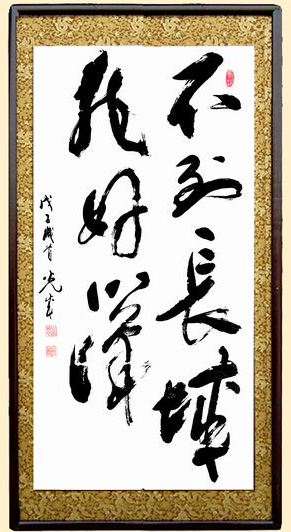 不到長城
非好漢
戊子歲首